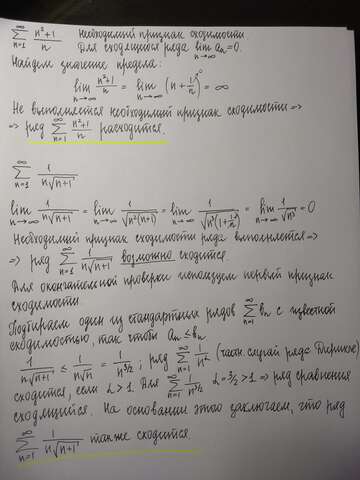 ∞∑n=1 (n²+1)/n Необходимый признак сходимости
Для сходящегося ряда lim n→∞ aₙ=0.
Найдем значение предела:
lim n→∞ (n²+1)/n = lim n→∞ (n + 1/n) = ∞
Не выполняется необходимый признак сходимости =>
=> ряд ∞∑n=1 (n²+1)/n расходится.
∞∑n=1 1/(n√(n+1))
lim n→∞ 1/(n√(n+1)) = lim n→∞ 1/√(n²(n+1)) = lim n→∞ 1/√(n³(1+1/n)) = lim n→∞ 1/√n³ = 0
Необходимый признак сходимости ряда выполняется =>
=> ряд ∞∑n=1 1/(n√(n+1)) возможно сходится.
Для окончательной проверки используем первый признак
сходимости.
Подбираем один из стандартных рядов ∞∑n=1 bₙ с известной
сходимостью, так чтобы aₙ ≤ bₙ
1/(n√(n+1)) ≤ 1/(n√n) = 1/n^(3/2) ; ряд ∞∑n=1 1/n^α (частн. случай ряда Дирихле)
сходится, если α > 1. Для ∞∑n=1 1/n^(3/2) α = 3/2 > 1 => ряд сравнения
сходящийся. На основании этого заключаем, что ряд
∞∑n=1 1/(n√(n+1)) также сходится.